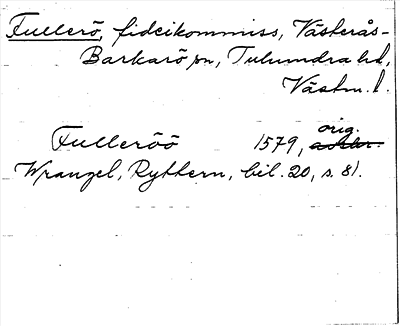 Fullerö, fideikommiss, Västerås-
Barkarö sn, Tuhundra hd,
Västm. l.
orig.
Fulleröö 1579,
Wrangel, Ryttern, bil. 20, s. 81.